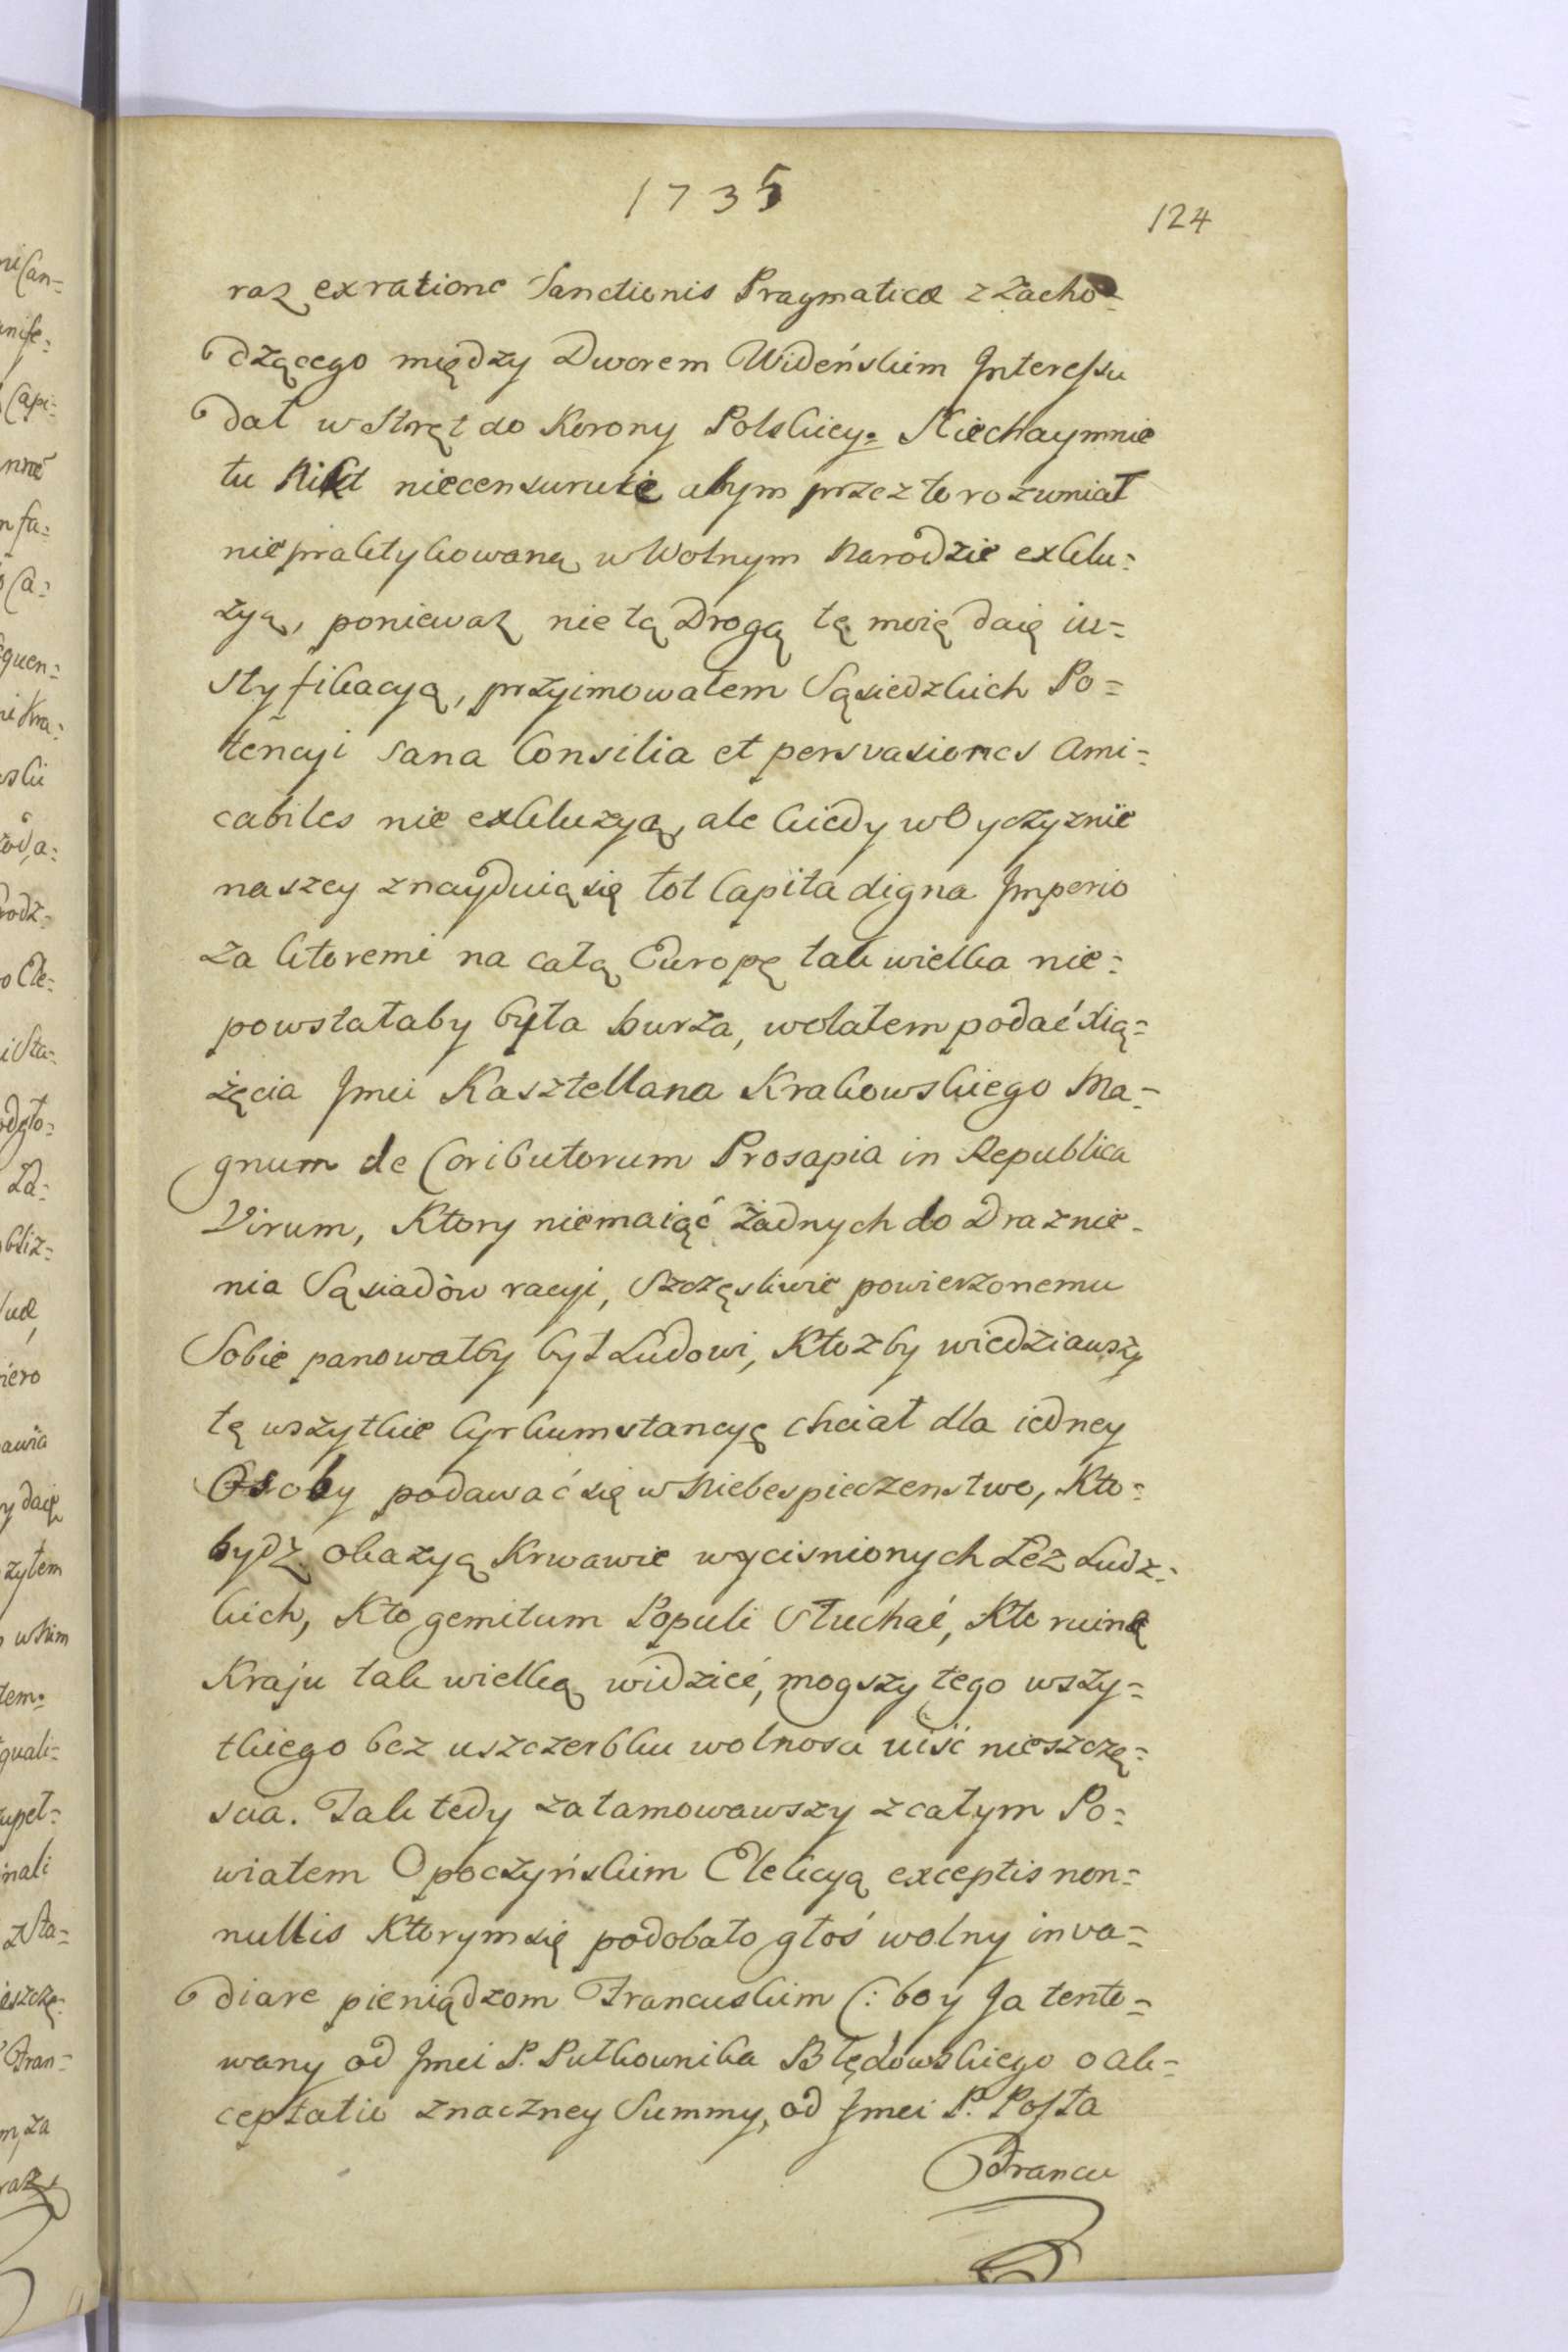 1735
124
raz exratione Sanctionis Pragmaticæ z Zacho=
dzącego między Dworem Wideńskim Interessu
dał wstręt do Korony Polskiey. Niechaymnie
tu Nikt niecensuruie abym przez to rozumiał
niepraktykowaną w Wolnym Narodzie exklu=
zyą, poniewaz nie tą Drogą tę moię daię ju=
styfikacyą, przyimowałem Sąsiedzkich Po=
tencyi sana Consilia et persvasiones Ami=
cabiles nie exkluzyą, ale kiedy w Oyczyznie
naszey znayduią się tot Capita digna Imperio
Za ktoremi na całą Europę tak wielka nie=
powstałaby była burza, wolałem podać Xią=
żęcia Jmci Kasztellana Krakowskiego Ma=
gnum de Coributorum Prosapia in Republica
Virum, Ktory niemaiąć Żadnych do Draznie=
nia Sąsiadów racyi, Szczęsliwie powierzonemu
Sobie panowałby był Ludowi, Ktozby wiedziawszy
tę wszytkie Cyrkumstancyę chciał dla iedney
Osoby podawać się w Niebespieczenstwo, Kto=
bydz okazyą Krwawie wycisnionych Łez Ludz=
kich, Kto gemitum Populi Słuchać, Kto ruinę
Kraju tak wielką widzieć, mogszy tego wszy=
tkiego bez uszczerbku wolnosci uiść nieszczę=
scia. Tak tedy zatamowawszy z całym Po=
wiatem Opoczyńskim Elekcyą exceptis non=
nullis Ktorym się podobało głoś wolny inva=
diare pieniądzom Francuskim (: bo y Ja tento=
wany od Jmci P. Pułkownika Błędowskiego o ak=
ceptatio znaczney Summy, od Jmci P. Posła
Francu